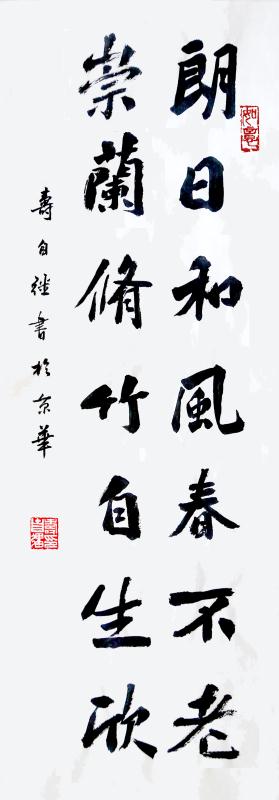 朗日和風春不老
崇蘭脩竹自生欣
壽自繼書於京華